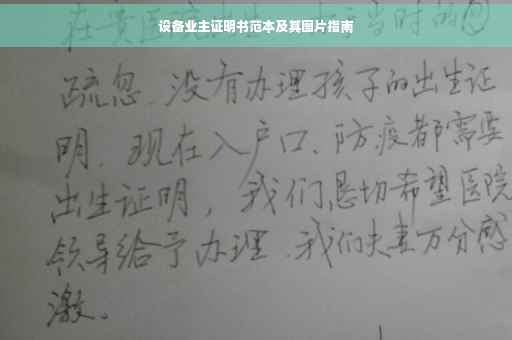 设备业主证明书范本及其图片指南
在贵医院出生，由于当时的
疏忽、没有办理孩子的出生证
明、现在入户口、防疫都需要
出生证明，我们恳切希望医院
领导给予办理、我们夫妻万分感
激。